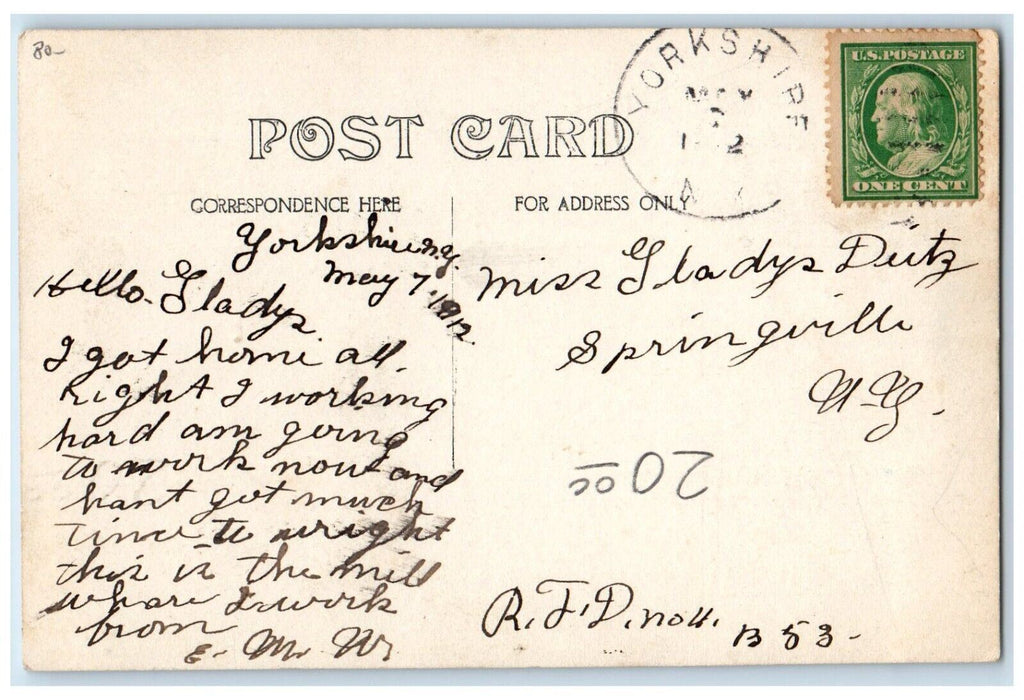 80-
POST CARD
CORRESPONDENCE HERE
FOR ADDRESS ONLY
YORKSHIRE
MAY
U.S. POSTAGE
ONE CENT
Yorkshire n.y.
May 7, 1912.
Hello. Gladys
I got home all
right I working
hard am going
to work now and
hant got much
time to wright
this is the mill
whare I work
from
E. M. W.
Miss Gladys Deitz
Springville
N-Y.
20 00
R.F.D. no 4.
B 53-